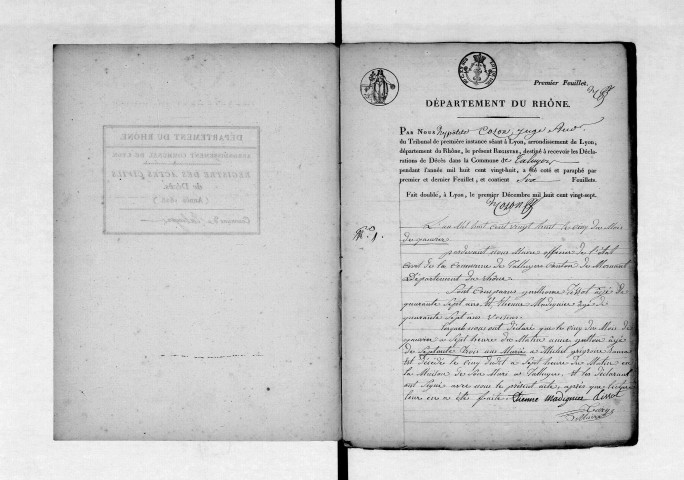 Premier Feuillet.
DÉPARTEMENT DU RHÔNE.
PAR NOUS hyppolite Coron, juge Aud.
du Tribunal de première instance séant à Lyon, arrondissement de Lyon,
département du Rhône, le présent REGISTRE, destiné à recevoir les Décla-
rations de Décès dans la Commune de Taluyers
pendant l'année mil huit cent vingt-huit, a été coté et paraphé par
premier et dernier Feuillet; et contient Six Feuillets.
Fait double, à Lyon, le premier Décembre mil huit cent vingt-sept.
Coron
N.° 1.
L'an Mil huit cent vingt huit le cinq du Mois
de janvier
pardevant nous Maire officier de l'état
civil de la commune de Talluyers canton de Mornant
Département du rhône.
Sont comparus guilliaume Tissot âgé de
quarante Sept ans Et Etienne Madignier âgé de
quarante Sept ans
Lesquels nous ont déclaré que le cinq du Mois de
janvier a Sept heure du Matin anne âgée
de Septante trois ans Marié a Michel
est décédé le cinq dudit a Sept heure du Matin en
la Maison de Son Mari a Talluyers. Et les déclarant
ont Signé avec nous le présent acte, après que lecture
leur en a été faite. Etienne madignier tissot
Maire
DÉPARTEMENT DU RHÔNE.
REGISTRE DES ACTES CIVILS
de Décès.